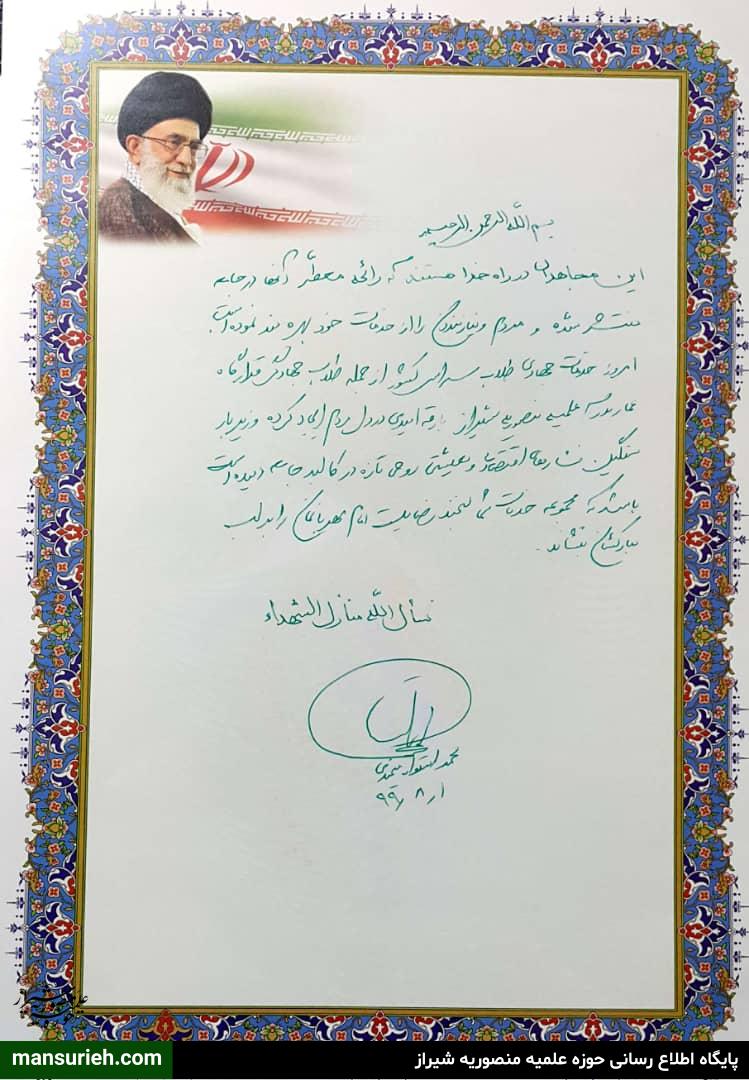 بسم الله الرحمن الرحیم
این مجاهدان در راه خدا هستند که رائحه معطر آنها در جامعه
منتشر شده و مردم و نیازمندان را از خدمات خود بهره مند نموده است
امروز خدمات جهادی طلاب سراسر کشور از جمله طلاب جهادگر قرارگاه
عمار مدرسه علمیه منصوریه شیراز بارقه امیدی در دل مردم ایجاد کرده و زیر بار
سنگین فشارهای اقتصادی و معیشتی روحی تازه در کالبد جامعه دمیده است
باشد که مجموعه خدمات شما لبخند رضایت امام مهربانمان را بر لب
مبارکشان بنشاند.
نسأل الله منازل الشهداء
محمد
۹۹/۸/۱
mansurieh.com
پایگاه اطلاع رسانی حوزه علمیه منصوریه شیراز